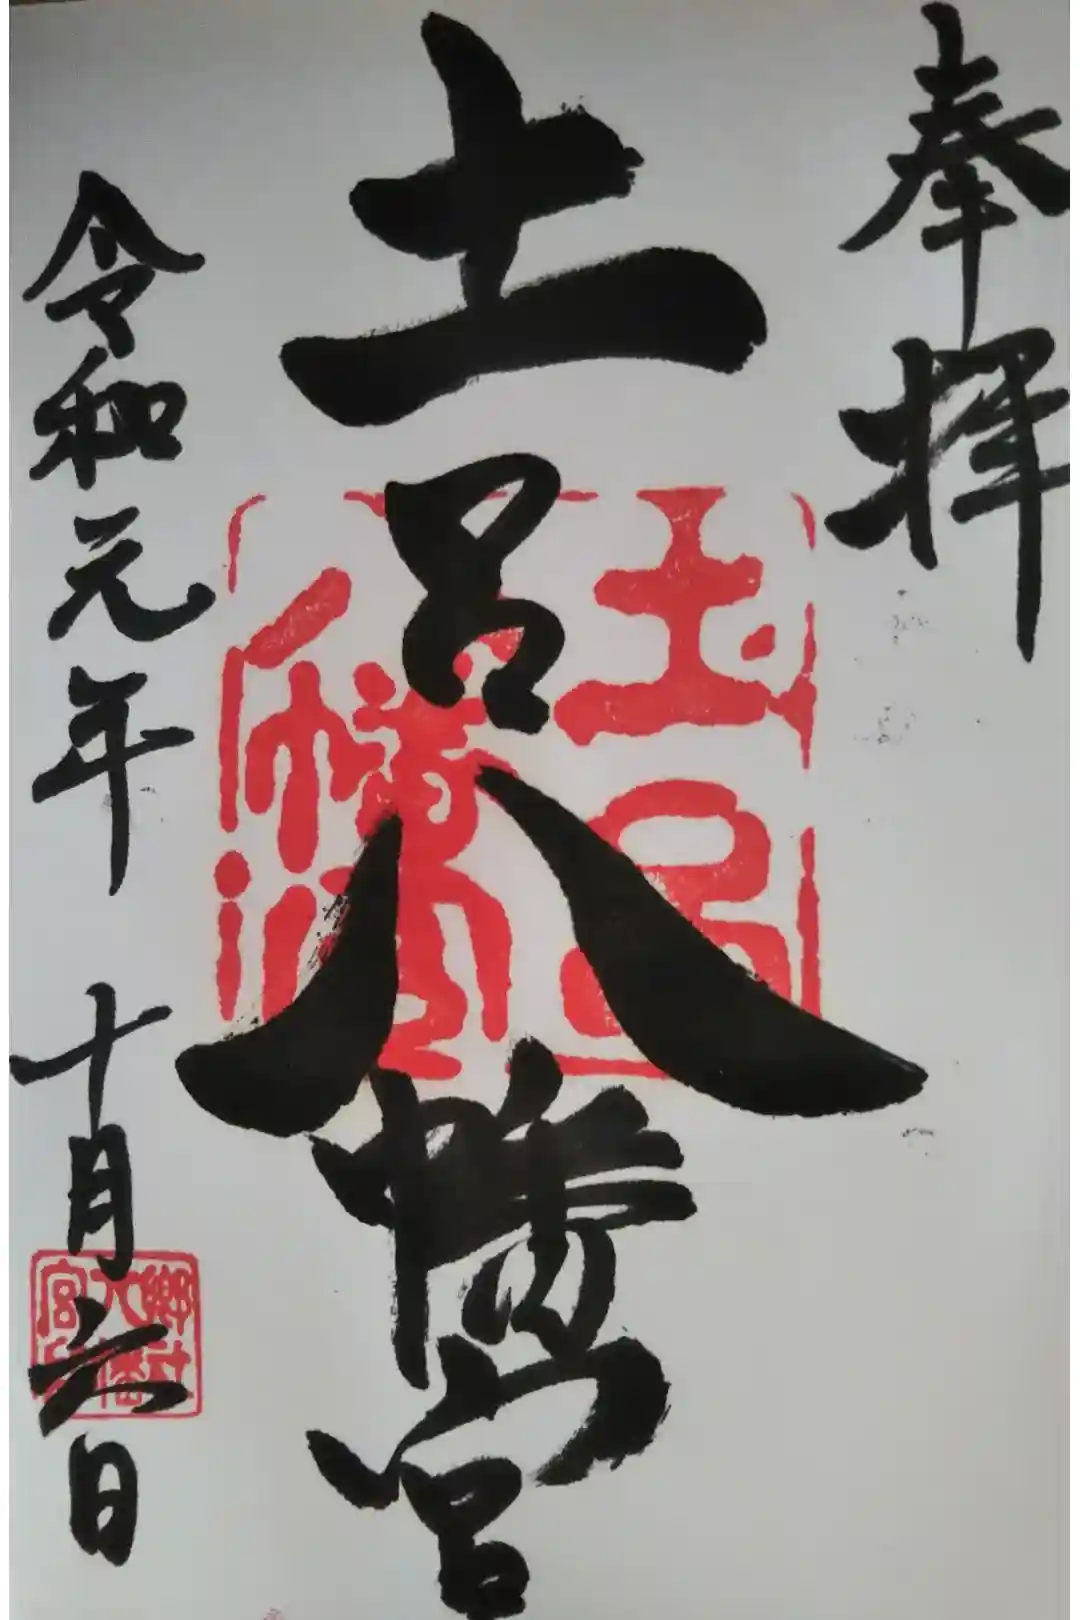 奉拝
土呂八幡宮
令和元年 十月六日
郷社
八幡
宮